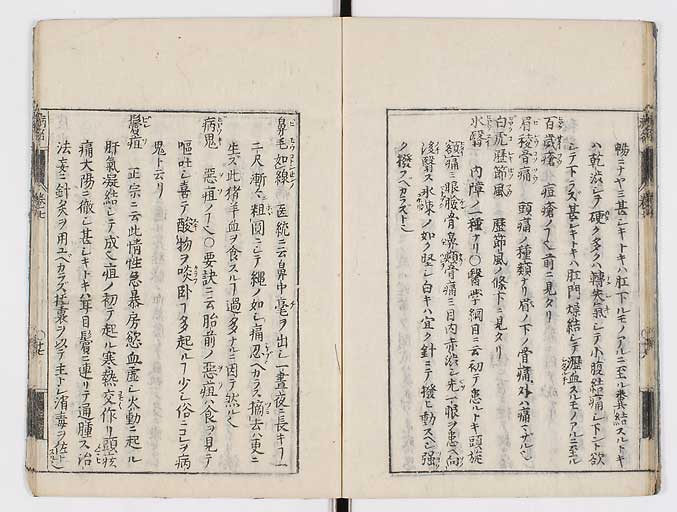 暢ニナヤミ甚シキトキハ肛下ルモノアルニ至ル糞結スルトキ
ハ乾渋シテ硬ク多クハ轉失氣シテ小腹結痛シ下ント欲
シテ下ラズ甚シキトキハ肛門燥結シテ瀝血スルモノアルニ至ル
百歳瘡 痘瘡ノ名前ニ見タリ
眉稜骨痛 頭痛ノ種類ナリ眉ノ下ノ骨痛外ハ痛マザルヘシ
白虎歴節風 歴節風ノ條下ニ見タリ
氷翳 内障ノ一種ナリ〇醫学綱目ニ云初テ患ルトキ頭旋
額痛ミ眼瞼骨鼻頬骨痛ミ目内赤渋シ先一眼ヲ患ヘ向
後翳ス氷凍ノ如ク堅シ白キハ宜ク針ニテ撥ヒ動スヘシ強
ク撥フヘカラスト
鼻毛如線 医統ニ云鼻中毫ヲ出シ一晝夜ニ長キコト一
二尺漸々粗圓ニシテ縄ノ如シ痛忍ヘカラス摘去ハ更ニ
生ズ此猪羊血ヲ食スルコト過多ナルニ因テ然ルヘシ
病鬼 惡疽ノ名〇要訣ニ云胎前ノ惡疽ハ食ヲ見テ
嘔吐シ喜テ酸物ヲ啖卧コト多起ルコト少シ俗ニコレヲ病
鬼ト云リ
鬢疽 正宗ニ云此情性急暴房慾血虚シ火動ニ起ル
肝氣凝結シテ成ル疽ノ初テ起ル寒熱交作リ頭眩
痛大陽ニ徹シ甚シキトキハ耳目鬢ニ連リテ通腫ス治
法妄ニ針灸ヲ用ユヘカラズ托裏ヲ以テ主トシ消毒ヲ佐トス